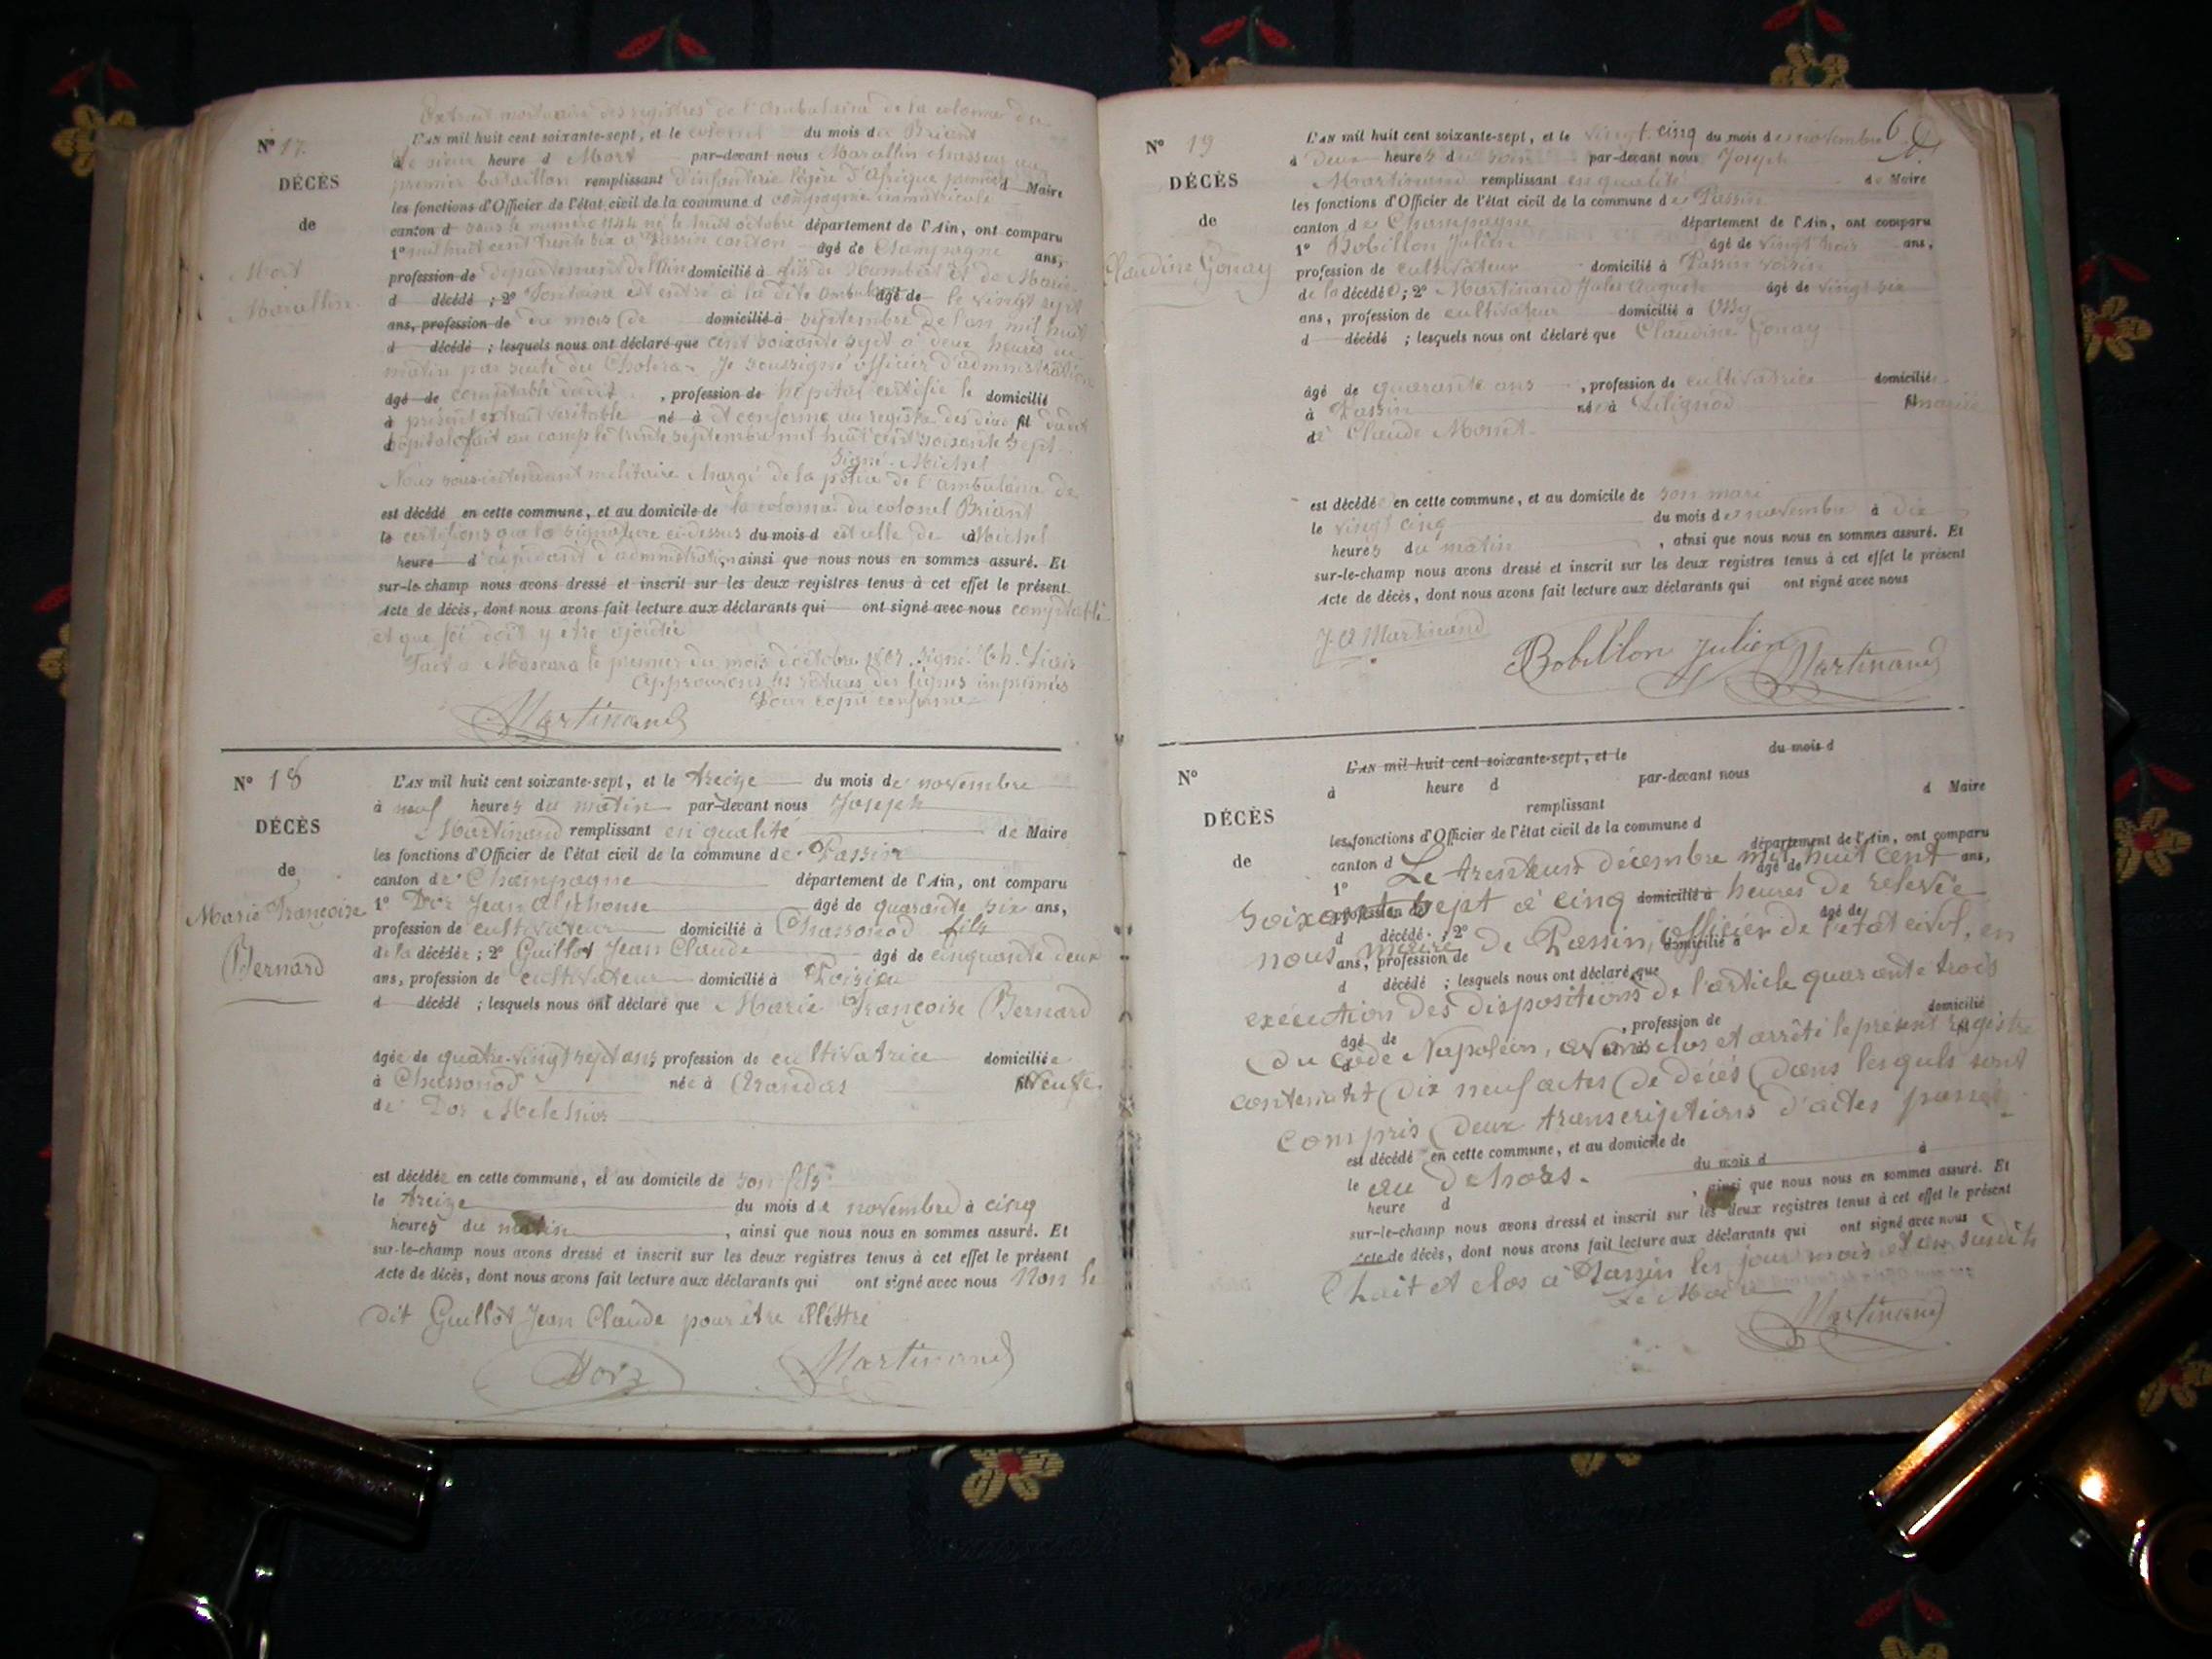 Extrait mortuaire des registres de l'Ambulance de la colonne du
N° 17.
L'AN mil huit cent soixante-sept, et le colonel du mois de Briant
Le sieur heure d Mort par-devant nous Marullin chasseur au
premier bataillon remplissant d'infanterie légère d'Afrique première d Maire
DÉCÈS
les fonctions d'Officier de l'état civil de la commune d compagnie immatriculé
de
canton d sous le numéro 1144 né le huit octobre département de l'Ain, ont comparu
1° mil huit cent trente six à Passin canton âgé de Champagne ans,
Mort
profession de département de l'Ain domicilié à fils de Humbert et de Marie
Marullin
d décédé ; 2° Fontaine est entré à la dite ambulance âgé de le vingt sept
ans, profession de du mois de domicilié à septembre de l'an mil huit
d décédé ; lesquels nous ont déclaré que cent soixante sept à deux heures du
matin par suite du Choléra. Je soussigné officier d'administration
âgé de comptable dudit , profession de hôpital certifie le domicilié
à présent extrait véritable né à et conforme au registre des décès fil dudit
d hôpital fait au complet trente septembre mil huit cent soixante sept
Signé Michel
Nous sous-intendant militaire chargé de la police de l'ambulance de
est décédé en cette commune, et au domicile de la colonne du colonel Briant
le certifions que la signature ci-dessus du mois d est celle de à Michel
heure d adjudant d'administration, ainsi que nous nous en sommes assuré. Et
sur-le-champ nous avons dressé et inscrit sur les deux registres tenus à cet effet le présent
Acte de décès, dont nous avons fait lecture aux déclarants qui ont signé avec nous comptable
et que foi doit y être ajoutée
Fait à Mascara le premier du mois d'octobre 1867. Signé Ch.
Approuvons les ratures des lignes imprimées
Pour copie conforme
Martinand
N° 18
L'AN mil huit cent soixante-sept, et le treize du mois de novembre
à neuf heures du matin par-devant nous Joseph
DÉCÈS
Martinand remplissant en qualité de Maire
les fonctions d'Officier de l'état civil de la commune de Passin
de
canton de Champagne département de l'Ain, ont comparu
Marie Françoise
1° Dor Jean Alphonse âgé de quarante six ans,
profession de cultivateur domicilié à Chassonod fils
Bernard
de la décédée ; 2° Guillot Jean Claude âgé de cinquante deux
ans, profession de cultivateur domicilié à Poisieu
d décédé ; lesquels nous ont déclaré que Marie Françoise Bernard
âgée de quatre-vingt sept ans, profession de cultivatrice domiciliée
à Chassonod née à Arandas fil veuve
de Dor Melchior
est décédée en cette commune, et au domicile de son fils
le treize du mois de novembre à cinq
heures du matin , ainsi que nous nous en sommes assuré. Et
sur-le-champ nous avons dressé et inscrit sur les deux registres tenus à cet effet le présent
Acte de décès, dont nous avons fait lecture aux déclarants qui ont signé avec nous Non le
dit Guillot Jean Claude pour être illétré
Dor Martinand
6
N° 19
L'AN mil huit cent soixante-sept, et le vingt cinq du mois de novembre
à Deux heures du soir par-devant nous Joseph
DÉCÈS
Martinand remplissant en qualité de Maire
les fonctions d'Officier de l'état civil de la commune de Passin
de
canton de Champagne département de l'Ain, ont comparu
Claudine Gonay
1° Bobillon Julien âgé de vingt trois ans,
profession de cultivateur domicilié à Passin voisin
de la décédée ; 2° Martinand Jules Auguste âgé de vingt six
ans, profession de cultivateur domicilié à Ossy
d décédé ; lesquels nous ont déclaré que Claudine Gonay
âgé de quarante ans , profession de cultivatrice domicilié
à Passin née à Lilignod fil mariée
de Claude Monet
est décédé en cette commune, et au domicile de son mari
le vingt cinq du mois de novembre à dix
heures du matin , ainsi que nous nous en sommes assuré. Et
sur-le-champ nous avons dressé et inscrit sur les deux registres tenus à cet effet le présent
Acte de décès, dont nous avons fait lecture aux déclarants qui ont signé avec nous
J. A Martinand Bobillon Julien Martinand
N°
L'AN mil huit cent soixante-sept, et le du mois d
à heure d par-devant nous
DÉCÈS
remplissant d Maire
les fonctions d'Officier de l'état civil de la commune d
de
canton d département de l'Ain, ont comparu
Le trente un décembre mil huit cent
1° âgé de ans,
soixante sept à cinq heures de relevée
profession de domicilié à
d décédé ; 2° âgé de
nous maire de Passin, officier de l'état civil, en
ans, profession de domicilié à
d décédé ; lesquels nous ont déclaré que
exécution des dispositions de l'article quarante trois
âgé de , profession de domicilié
du code Napoléon, avons clos et arrêté le présent registre
à né à fil
d
contenant dix neuf actes de décès dans lesquels sont
compris deux transcriptions d'actes passés
est décédé en cette commune, et au domicile de
au dehors.
le du mois d à
heure d , ainsi que nous nous en sommes assuré. Et
sur-le-champ nous avons dressé et inscrit sur les deux registres tenus à cet effet le présent
Acte de décès, dont nous avons fait lecture aux déclarants qui ont signé avec nous
Fait et clos à Passin les jour mois et an susdits
Le Maire
Martinand